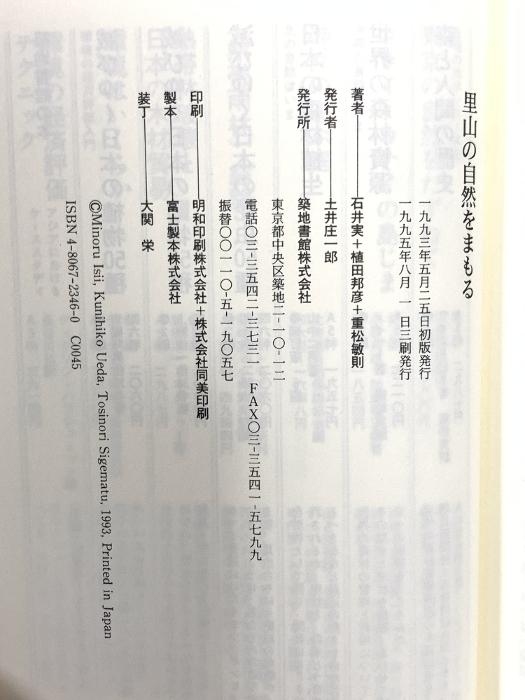 里山の自然をまもる
一九九三年五月二五日初版発行
一九九五年八月一日三刷発行
著者――石井実+植田邦彦+重松敏則
発行者――土井庄一郎
発行所――築地書館株式会社
東京都中央区築地二-一〇-一二
電話〇三-三五四二-三七三一 FAX〇三-三五四一-五七九九
振替〇〇一一〇-五-一九〇五七
印刷――明和印刷株式会社+株式会社同美印刷
製本――富士製本株式会社
装丁――大関 栄
©Minoru Isii, Kunihiko Ueda, Tosinori Sigematu, 1993, Printed in Japan
ISBN 4-8067-2346-0 C0045